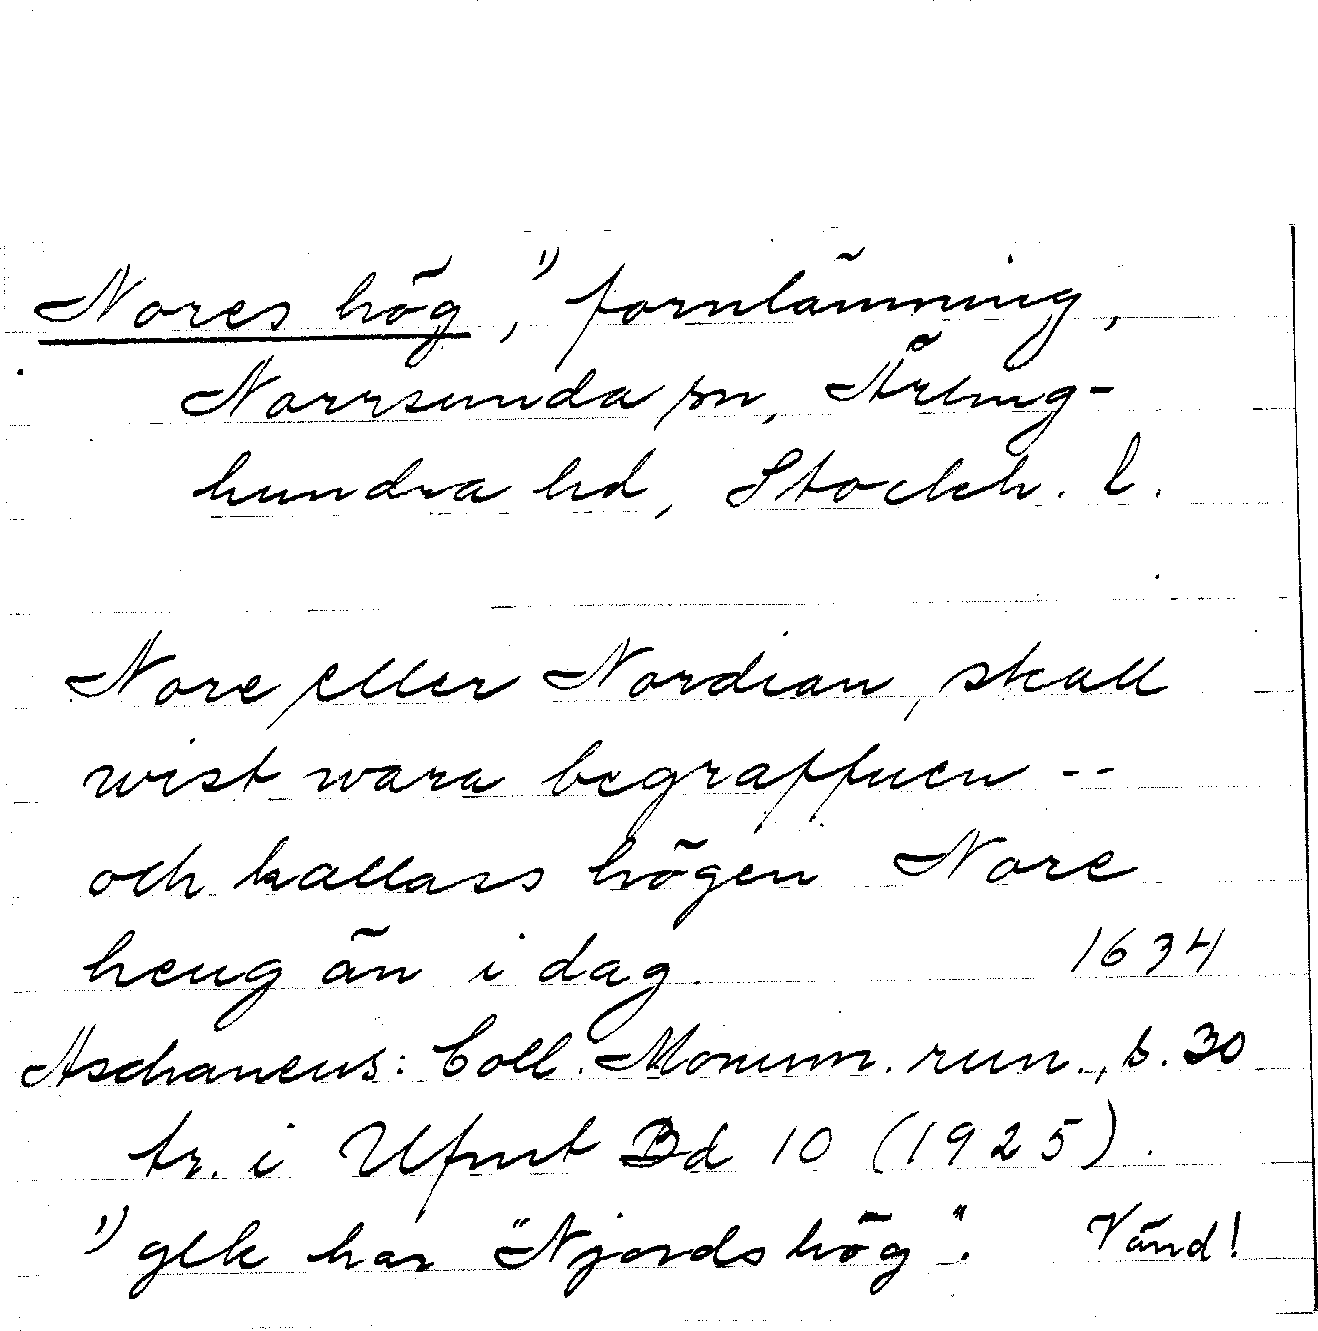 Nores hög, 1) fornlämning,
Norrsunda sn, Ärling-
hundra hd, Stockh. l.
Nore eller Nordian, skall
wist wara begraffuen --
och kallass högen Nore
heug än i dag. 1634
Aschaneus: Coll. Monum. run., s. 30
tr. i Ufmt Bd 10 (1925).
1) glk har "Njords hög". Vänd!